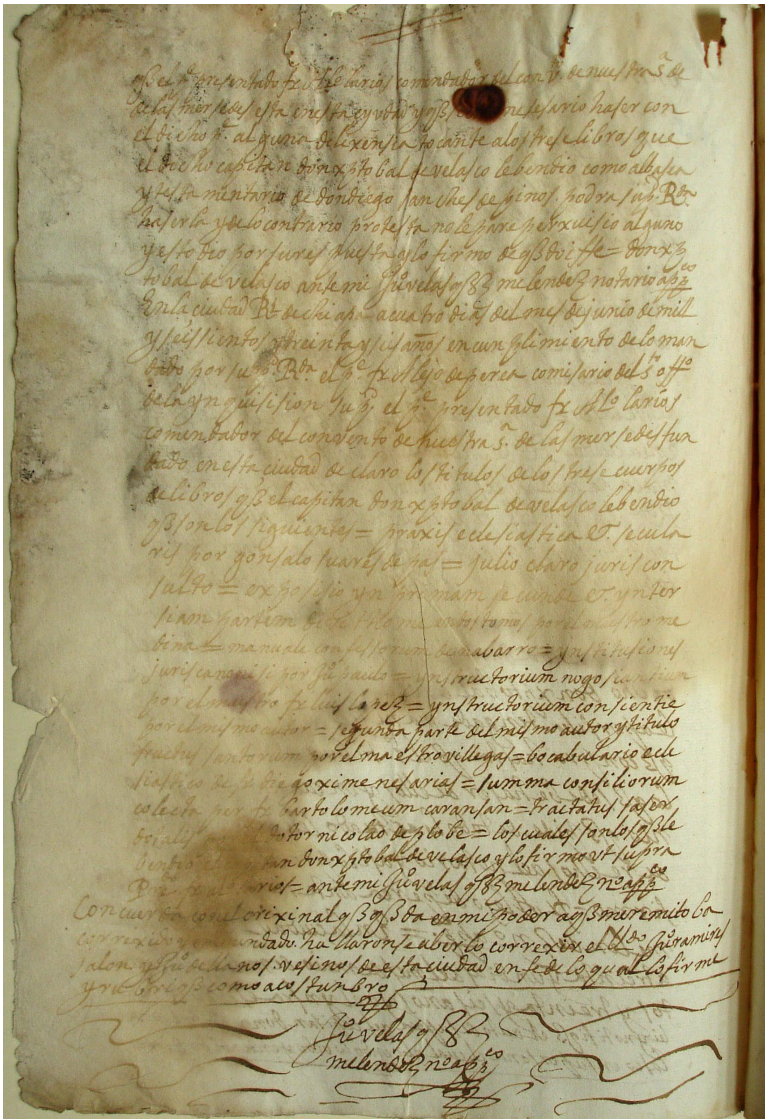 qe el pe presentado fr Alo larios comendador del conto de nuestra sa de
de las mersedes esta en esta ciudad y qe nesesario haser con
el dicho pe alguna delixensia tocante a los trese libros que
el dicho capitan don xptobal de velasco le bendio como albasea
y testamentario de don diego sanches de pinos podra su p. Rda
haserla y de lo contrario protesta no le pare perxuisio alguno
y esto dio por su respuesta y lo firmo de qe doi ffe = don xp
tobal de velasco ante mi Ju velasqez melendez notario appco
En la ciudad Rl de chiapa a cuatro dias del mes de junio de mill
y seissientos y treinta y seis años en cunplimiento de lo man
dado por su p. Rda el pe fr Alejo de perea comisario del sto offo
de la ynquisision su p. el pe presentado fr Alo larios
comendador del convento de nuestra sa de las mersedes fun
dado en esta ciudad declaro los titulos de los trese cuerpos
de libros qe el capitan don xptobal de velasco le bendio
qe son los siguientes = praxis eclesiastica et secula
ris por gonsalo suares de pas = julio claro juriscon
sulto = exposisio yn primam secunde et ynter
siam partem dibi tome en tos tomos por el maestro me
dina = manuale confessorum de nabarro = ynstitusiones
juris canonisi por Ju paulo = ynstructorium nogosiantium
por el maestro fr luis lopez = ynstructorium consientie
por el mismo autor = segunda parte del mismo autor y titulo
fructus santorum por el maestro villegas = bocabulario ecle
siastico de diego ximenes arias = summa consiliorum
colecta por fr bartolomeum caransan = tractatus saser
dotalis dotor nicolao de plobe = los cuales son los qe le
bendio capitan don xptobal de velasco y lo firmo vt supra
fr Alo larios = ante mi Ju velasqez melendez no appco
Concuerda con el orixinal qe qeda en mi poder a qe me remito ba
correxido y enmendado hallaronse a berlo correxir el Ldo Ju ramires
salon y Ju de llanos vesinos de esta ciudad en fe de lo qual lo firme
y rubriqe como acostunbro
Ju velasqez
melendez no appco